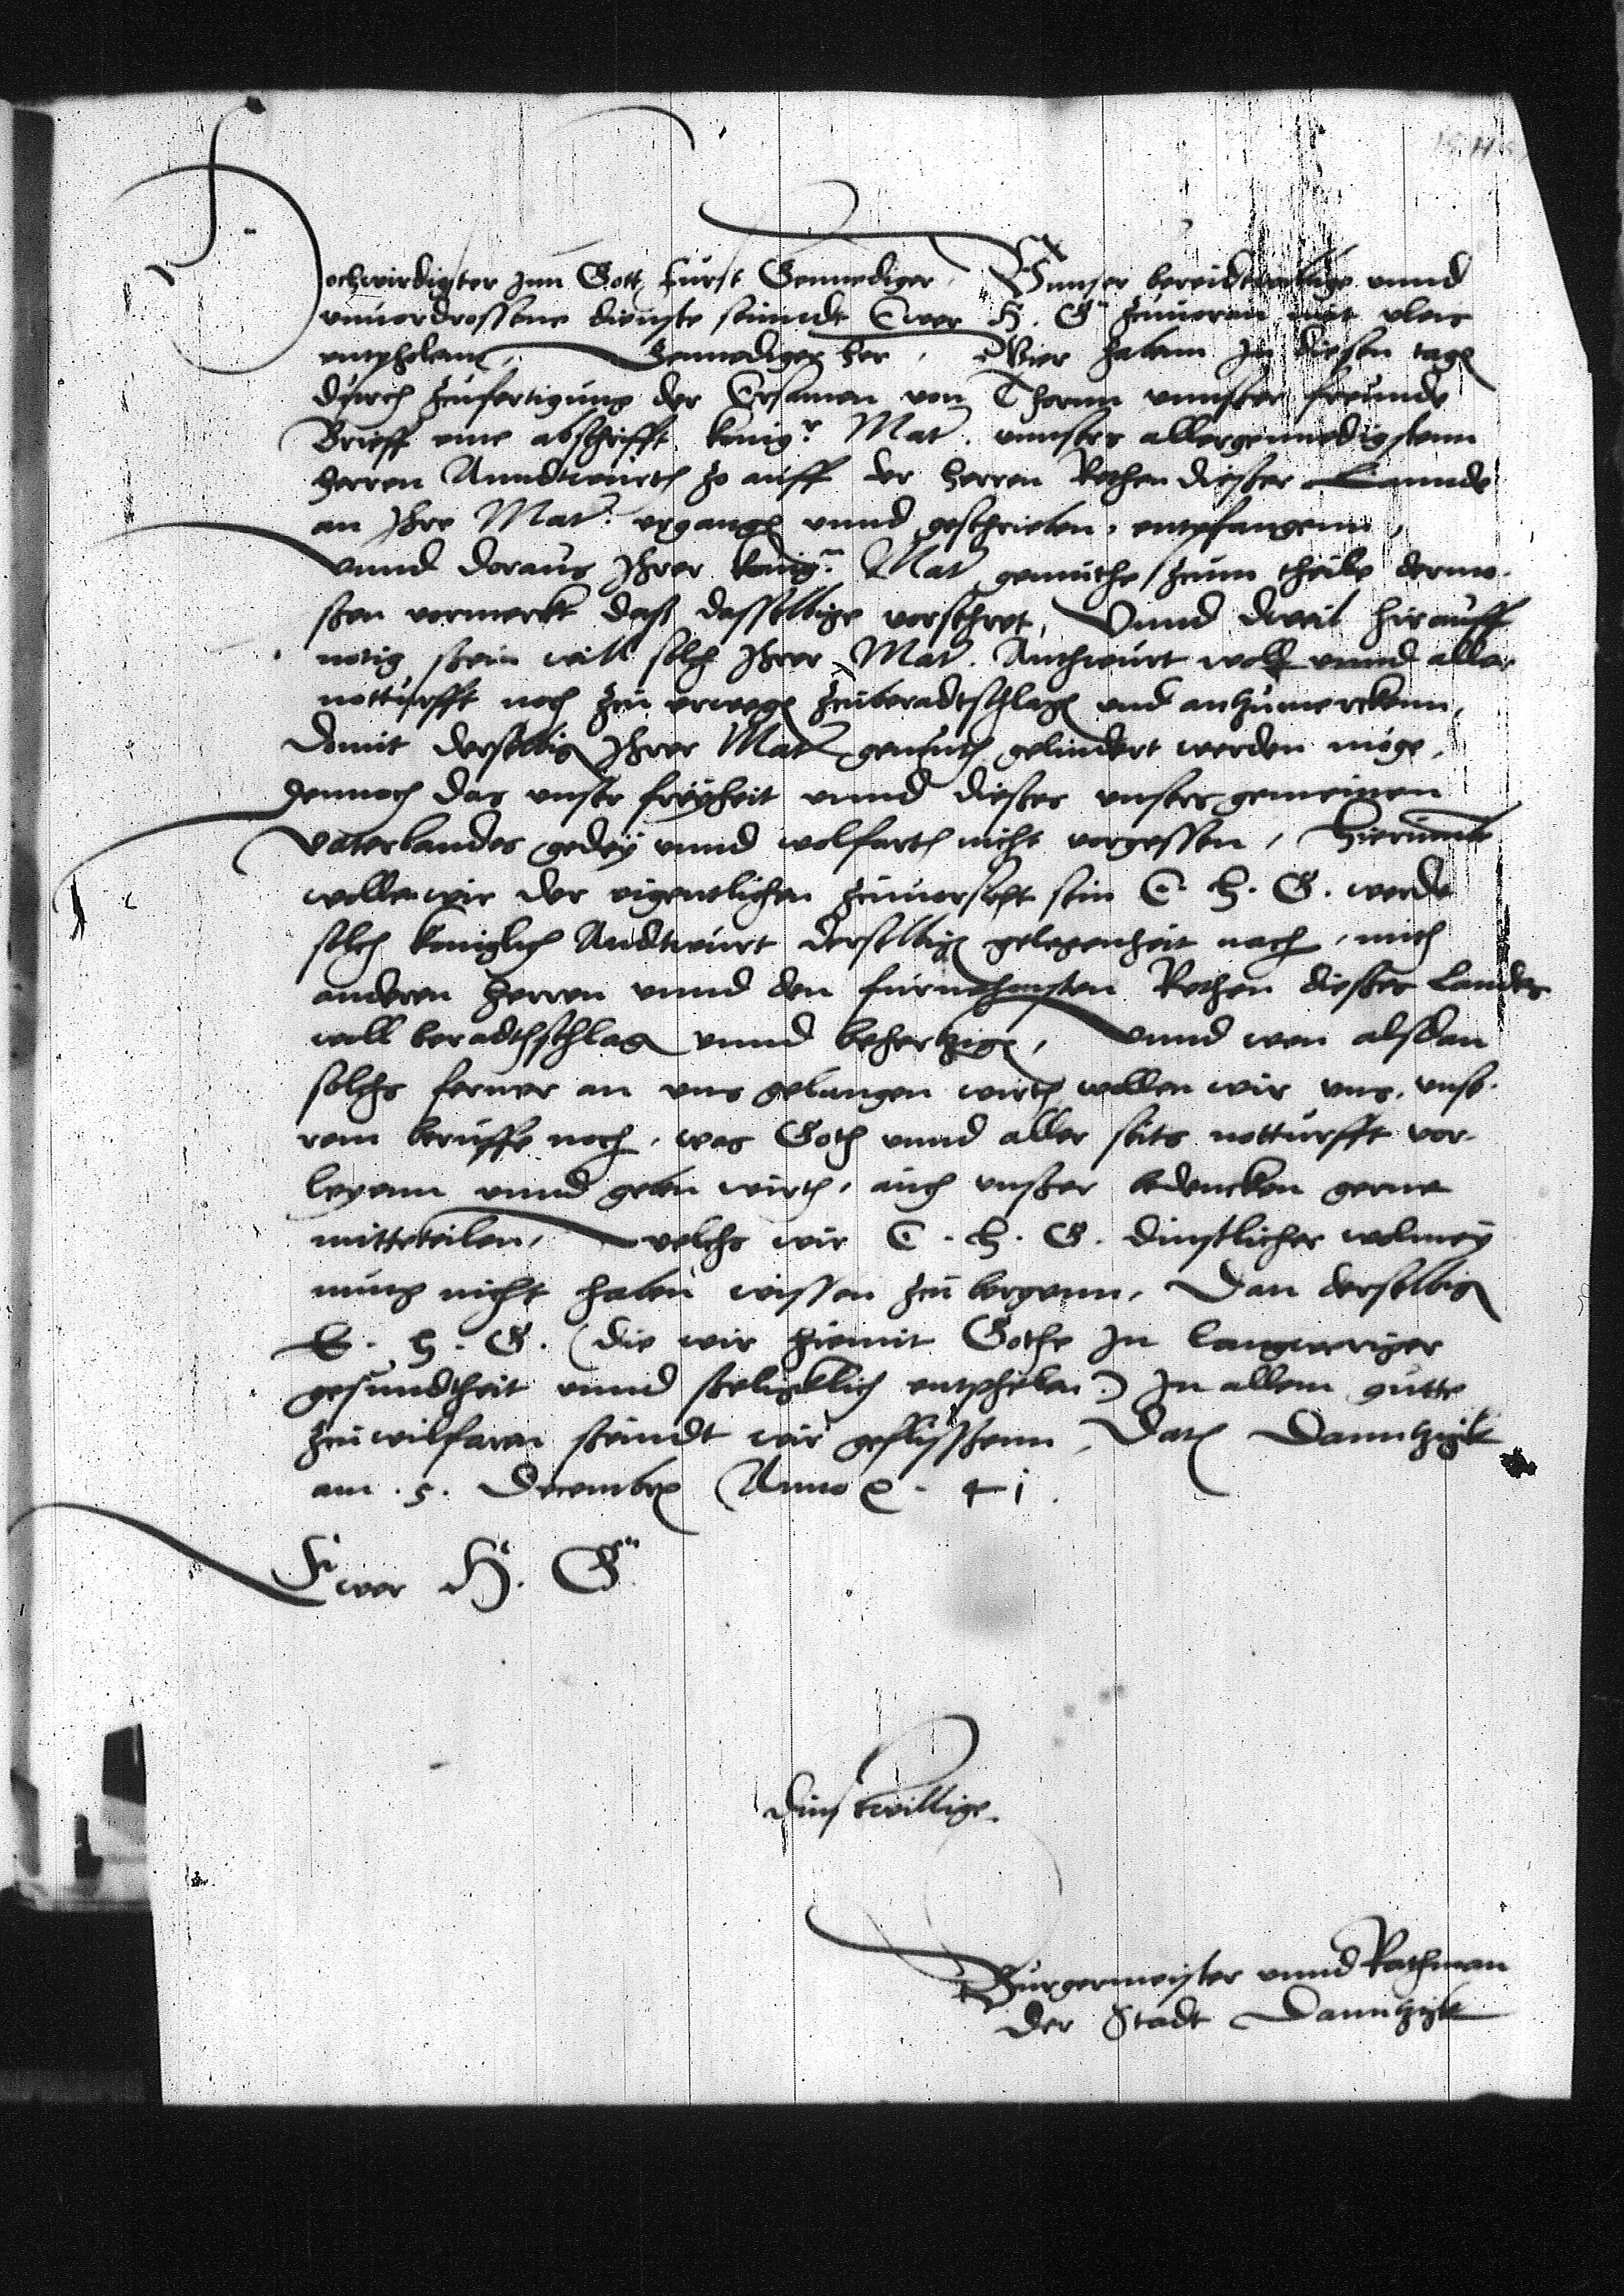 Hochwirdigster Inn Gott Furst Gennediger, Vunser bereidtwillige vnnd
vnuordrossene dienste seinndt Ewer H. G. zuuoran mit vleis
entpholenn, Gennediger her, Wier habenn In diesen tagen
durch zeufertigung der Ersamen von Thorun vnnser freunde
Brieff eine abschrifft konig.r Mat. vnnsers allergennedigstenn
herren Anndtwurth so auff der herren Rethen dieser Lannde
an Ihre Mat. ergangen vnnd geschrieben, entpfangenn,
Vnnd doraus Ihrer konig.n Mat gemuthe zeum theile derma-
ssen vormerkt das dasselbige vorsehret, Vnnd dweil hirauff
notig sein will solch Ihrer Mat. Anthwurt woll vnnd aller
notturfft noch zeu erwegen zeuberadtschlagen vnd anzumerckenn,
Domit derselbigen Ihrer Mat gemuth gelindert werden moge,
Dennoch das vnser freyheit vnnd dieses vnsers gemeinen
Vaterlandes gedey vnnd wolfarth nicht vorgessen, Hierumb
wollen wir der eigentlichen zuuorsicht sein E. H. G. werde
solch koniglich Andtwurt derselbigen gelegenheit nach, mith
anderen herren vnnd den furnehmsten Rethen dieses Landes
woll beradthschlagen vnnd behertzigen, Vnnd wen alsdan
solchs ferner an vns gelangen wirth wollen wir vns, vnse-
rem beruffe noch, was Goth vnnd aller seits notturfft vor-
leyenn vnnd geben wirth, auch vnser bedencken gerne
mitteteilen, welchs wir E. H. G. dinstlicher wolmey
nung nicht haben wissen zeu bergenn, Dan derselbigen
E. H. G. (die wir hiemit Gothe In langweriger
gesundtheit vnnd seligklich entphelen) In allem gutte
zeu wilfaren seindt wir geflissenn, Datum Danntzigk
am .5. Decembris Anno etc. 41.
Ewer H. G.
Dinstwillige
Burgermeister vnnd Rathman
der Stadt Danntzigk